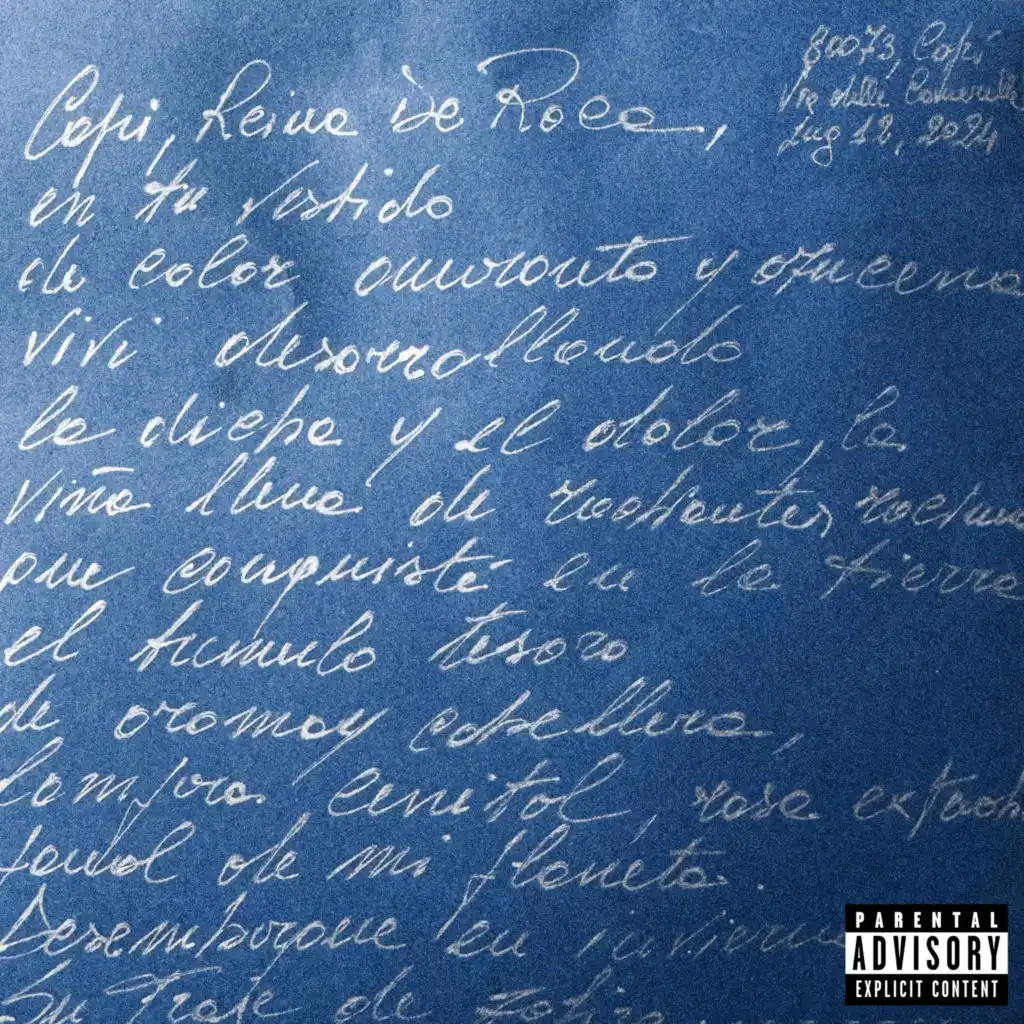 80073, Capi
Via delle Camerelle
Lug 12, 2024
Capi, Reina de Roca,
en tu vestido
de color amaranto y azucena
viví desarrollando
la dicha y el dolor, la
viña llena de radiantes racimos
que conquisté en la tierra
el tumulo tesoro
de aroma y cabellera,
lampara cenital, rosa
de mi planeta.
Desembarque en invierno
Su traje de zafiro
PARENTAL
ADVISORY
EXPLICIT CONTENT